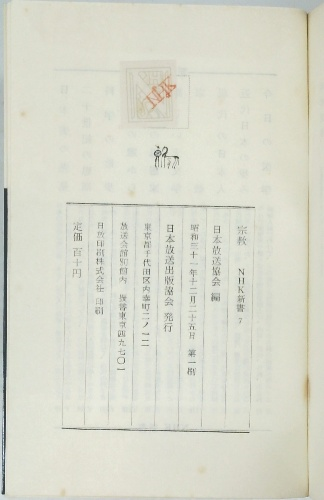 NHK
宗教　NHK新書 7
日本放送協会 編
昭和三十一年十二月二十五日　第一刷
日本放送出版協会 発行
東京都千代田区内幸町二ノ二
放送会館別館内　振替東京四九七〇一
日放印刷株式会社 印刷
定価 百十円